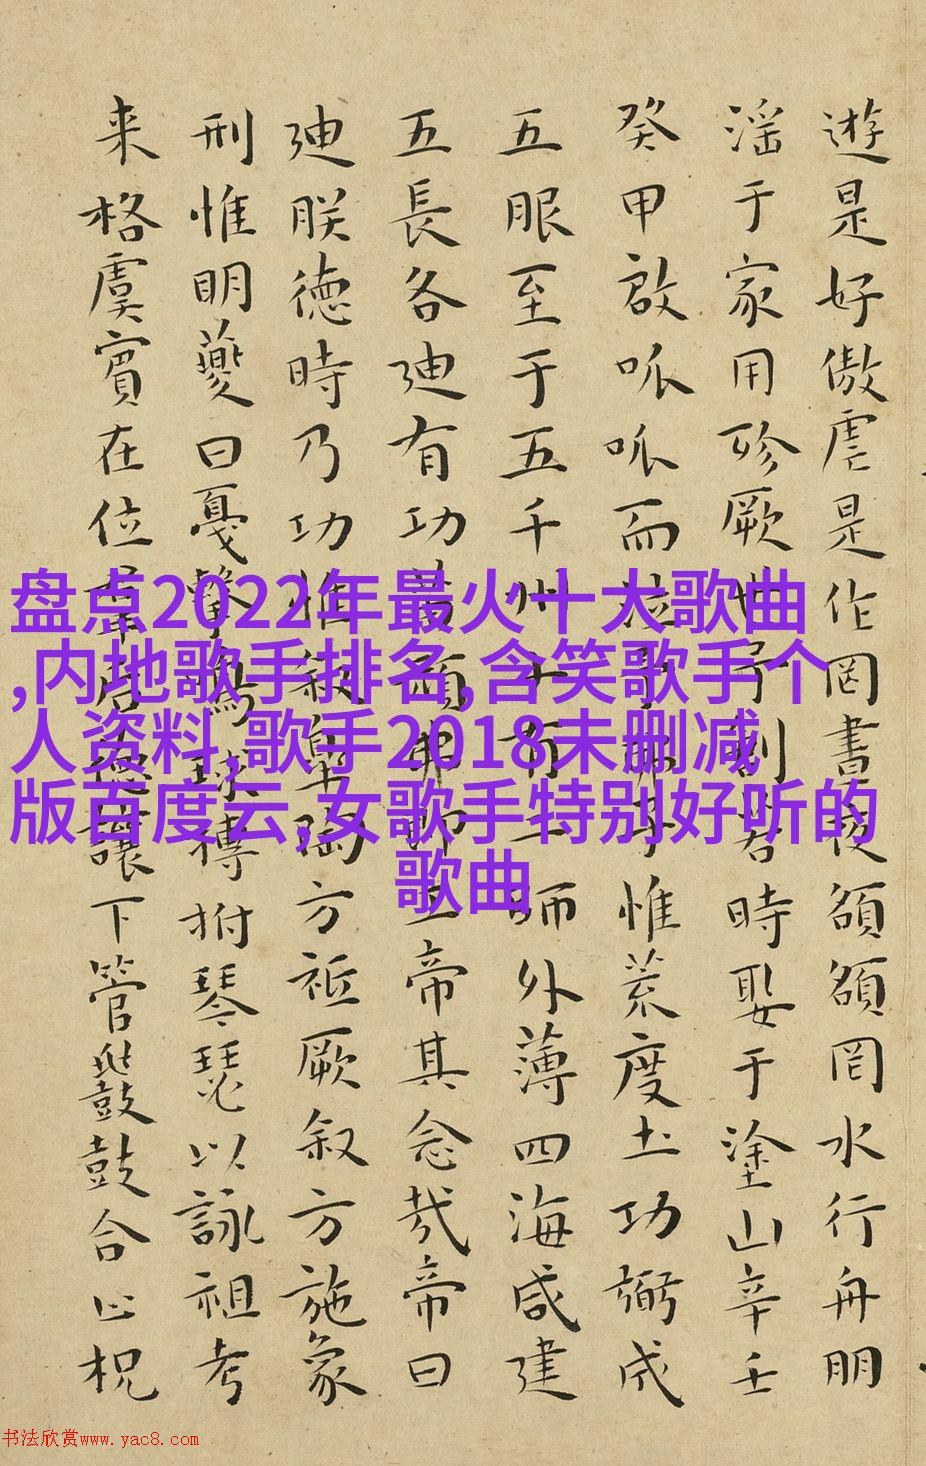 遊是好傲虐是作罔晝夜頟頟罔水行舟朋
淫于家用殄厥世予創若時娶于塗山辛壬
癸甲啟呱呱而泣予弗子惟荒度土功弼成
五服至于五千州十有二師外薄四海咸建
五長各迪有功苗頑弗即工帝其念哉帝曰
迪朕德時乃功惟叙皐陶方祗厥叙方施象
刑惟明夔曰戛擊鳴球搏拊琴瑟以詠祖考
来格虞賓在位羣后德讓下管鼗鼓合止柷
盘点2022年最火十大歌曲
,内地歌手排名,含笑歌手个
人资料,歌手2018未删减
版百度云,女歌手特别好听的
歌曲
书法欣赏www.yac8.com